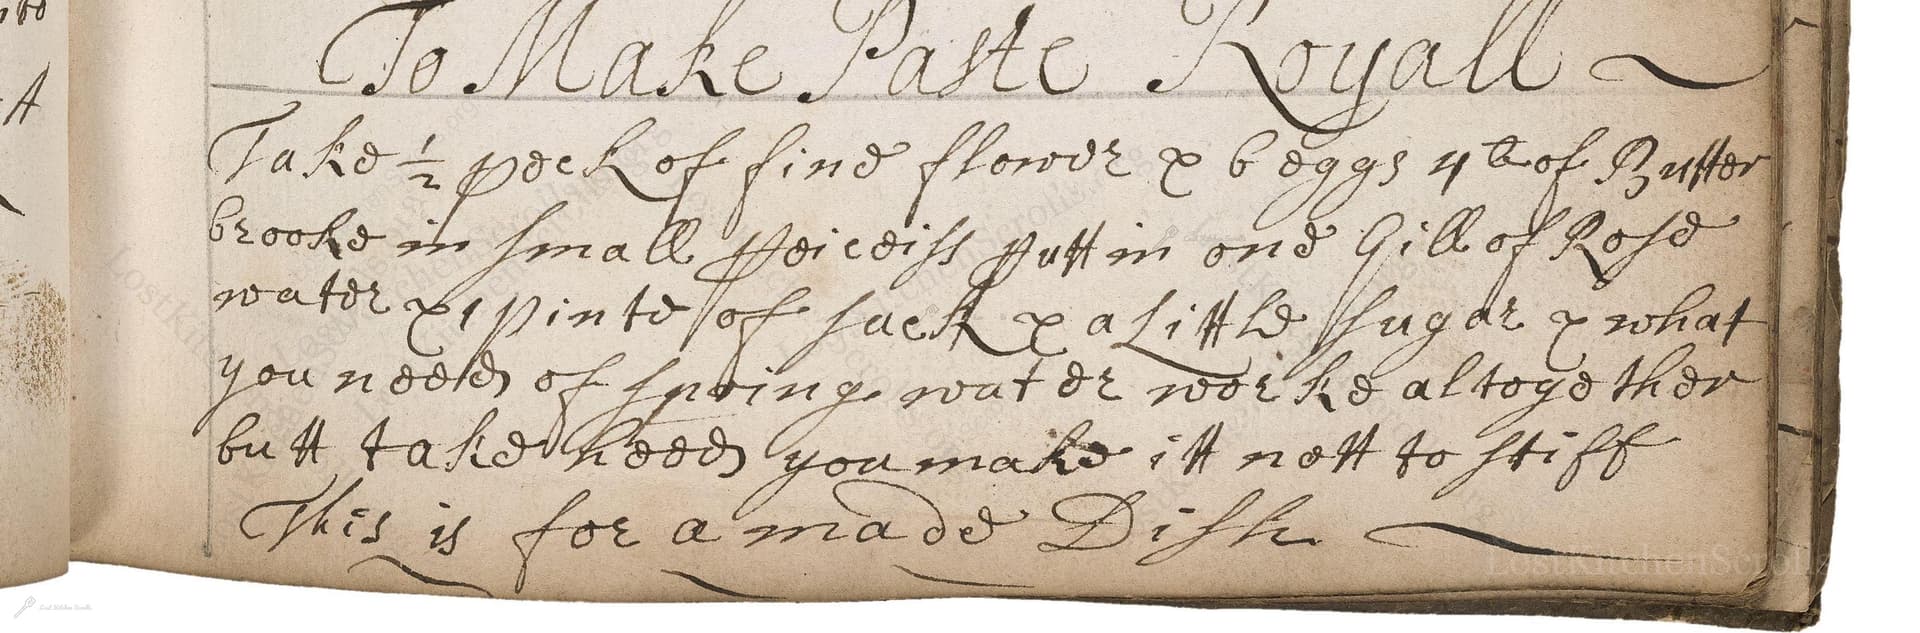 To Make Paste Royall
Take ½ peck of fine flower & 6 eggs 4 lb of Butter
brooke in small ppeiceiss putt in one Gill of Rose
water & 1 pinte of sack & a Little sugar & what
you need of spring water worke altogether
butt take heed you make itt nott to stiff
This is for a made Dish
LostKitchenScrolls